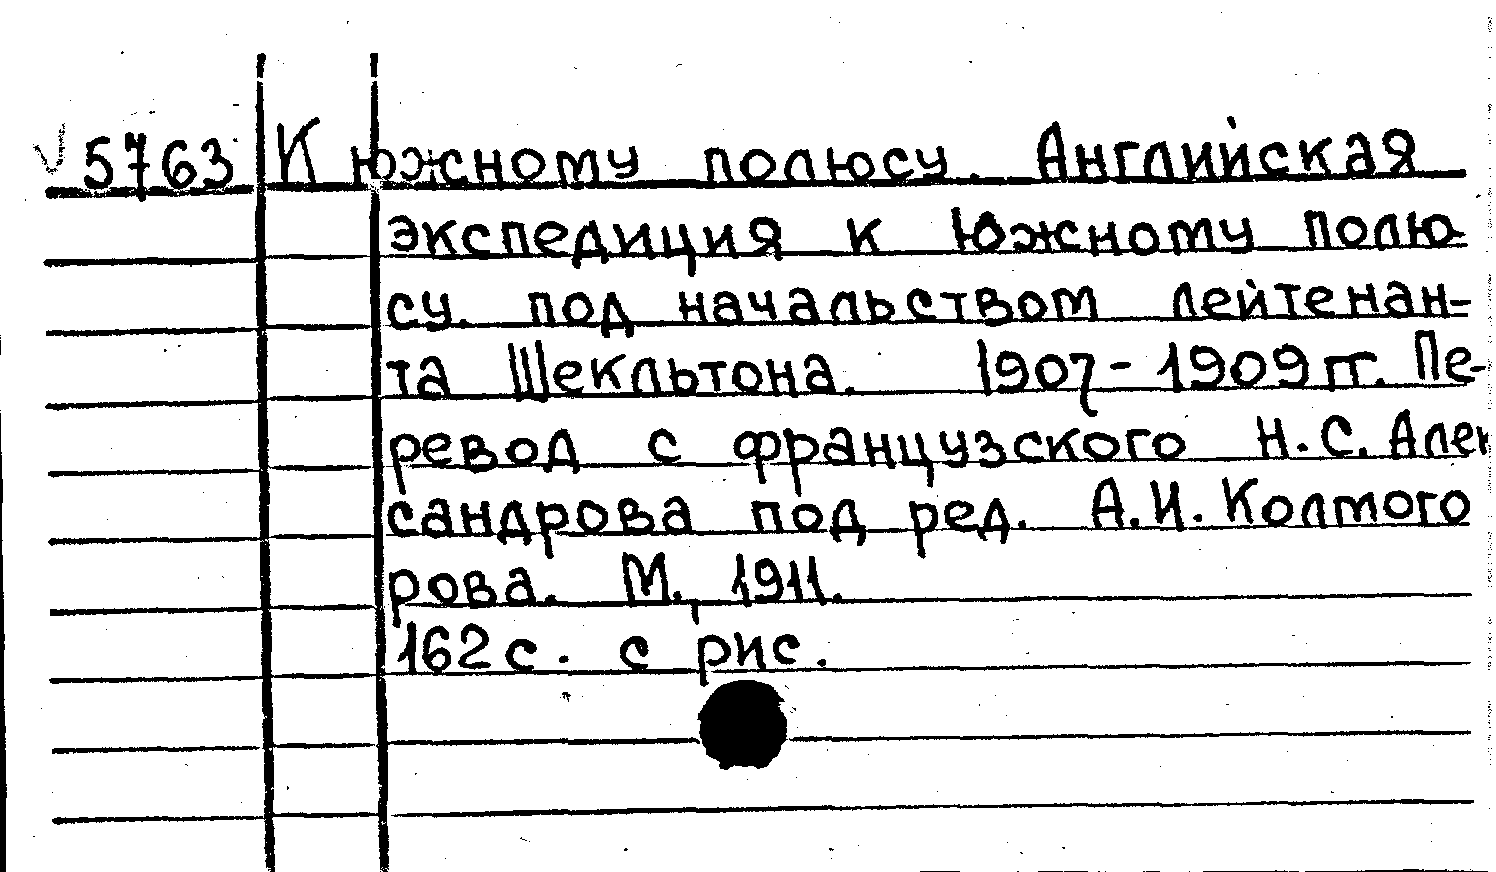 5763 К южному полюсу. Английская
экспедиция к Южному полю-
су. под начальством лейтенан-
та Шекльтона. 1907-1909 гг. Пе-
ревод с французского Н.С. Алек
сандрова под ред. А.И. Колмого
рова. М., 1911.
162 с. с рис.